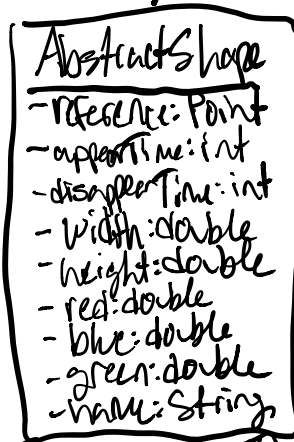 AbstractShape
-reference: Point
-appearTime: int
-disappearTime: int
- width: double
- height: double
- red: double
- blue: double
- green: double
- name: String